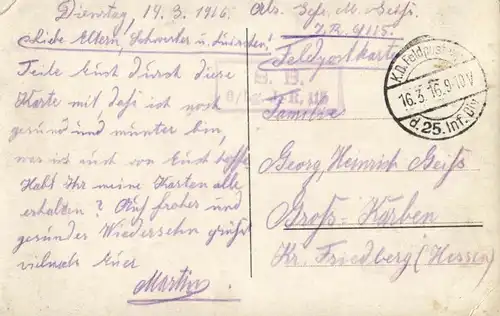 Dienstag, 14.3.1916.
Liebe Eltern, Schwester u.
Teile Euch durch diese
Karte mit daß ich noch
gesund und munter bin,
was ich auch von Euch hoffe
Habt Ihr meine Karten alle
erhalten? Auf froher und
gesunder Wiedersehn grüßt
vielmals Euer
Martin
Abs. M. Geiß.
I.R. 9/115.
Feldpostkarte
S. B.
I.R. 115
K.D. Feldpost
16.3.16.9-10V
d. 25. Inf. Div.
Familie
Georg Heinrich Geiß
Groß-Karben
Kr. Friedberg (Hessen)